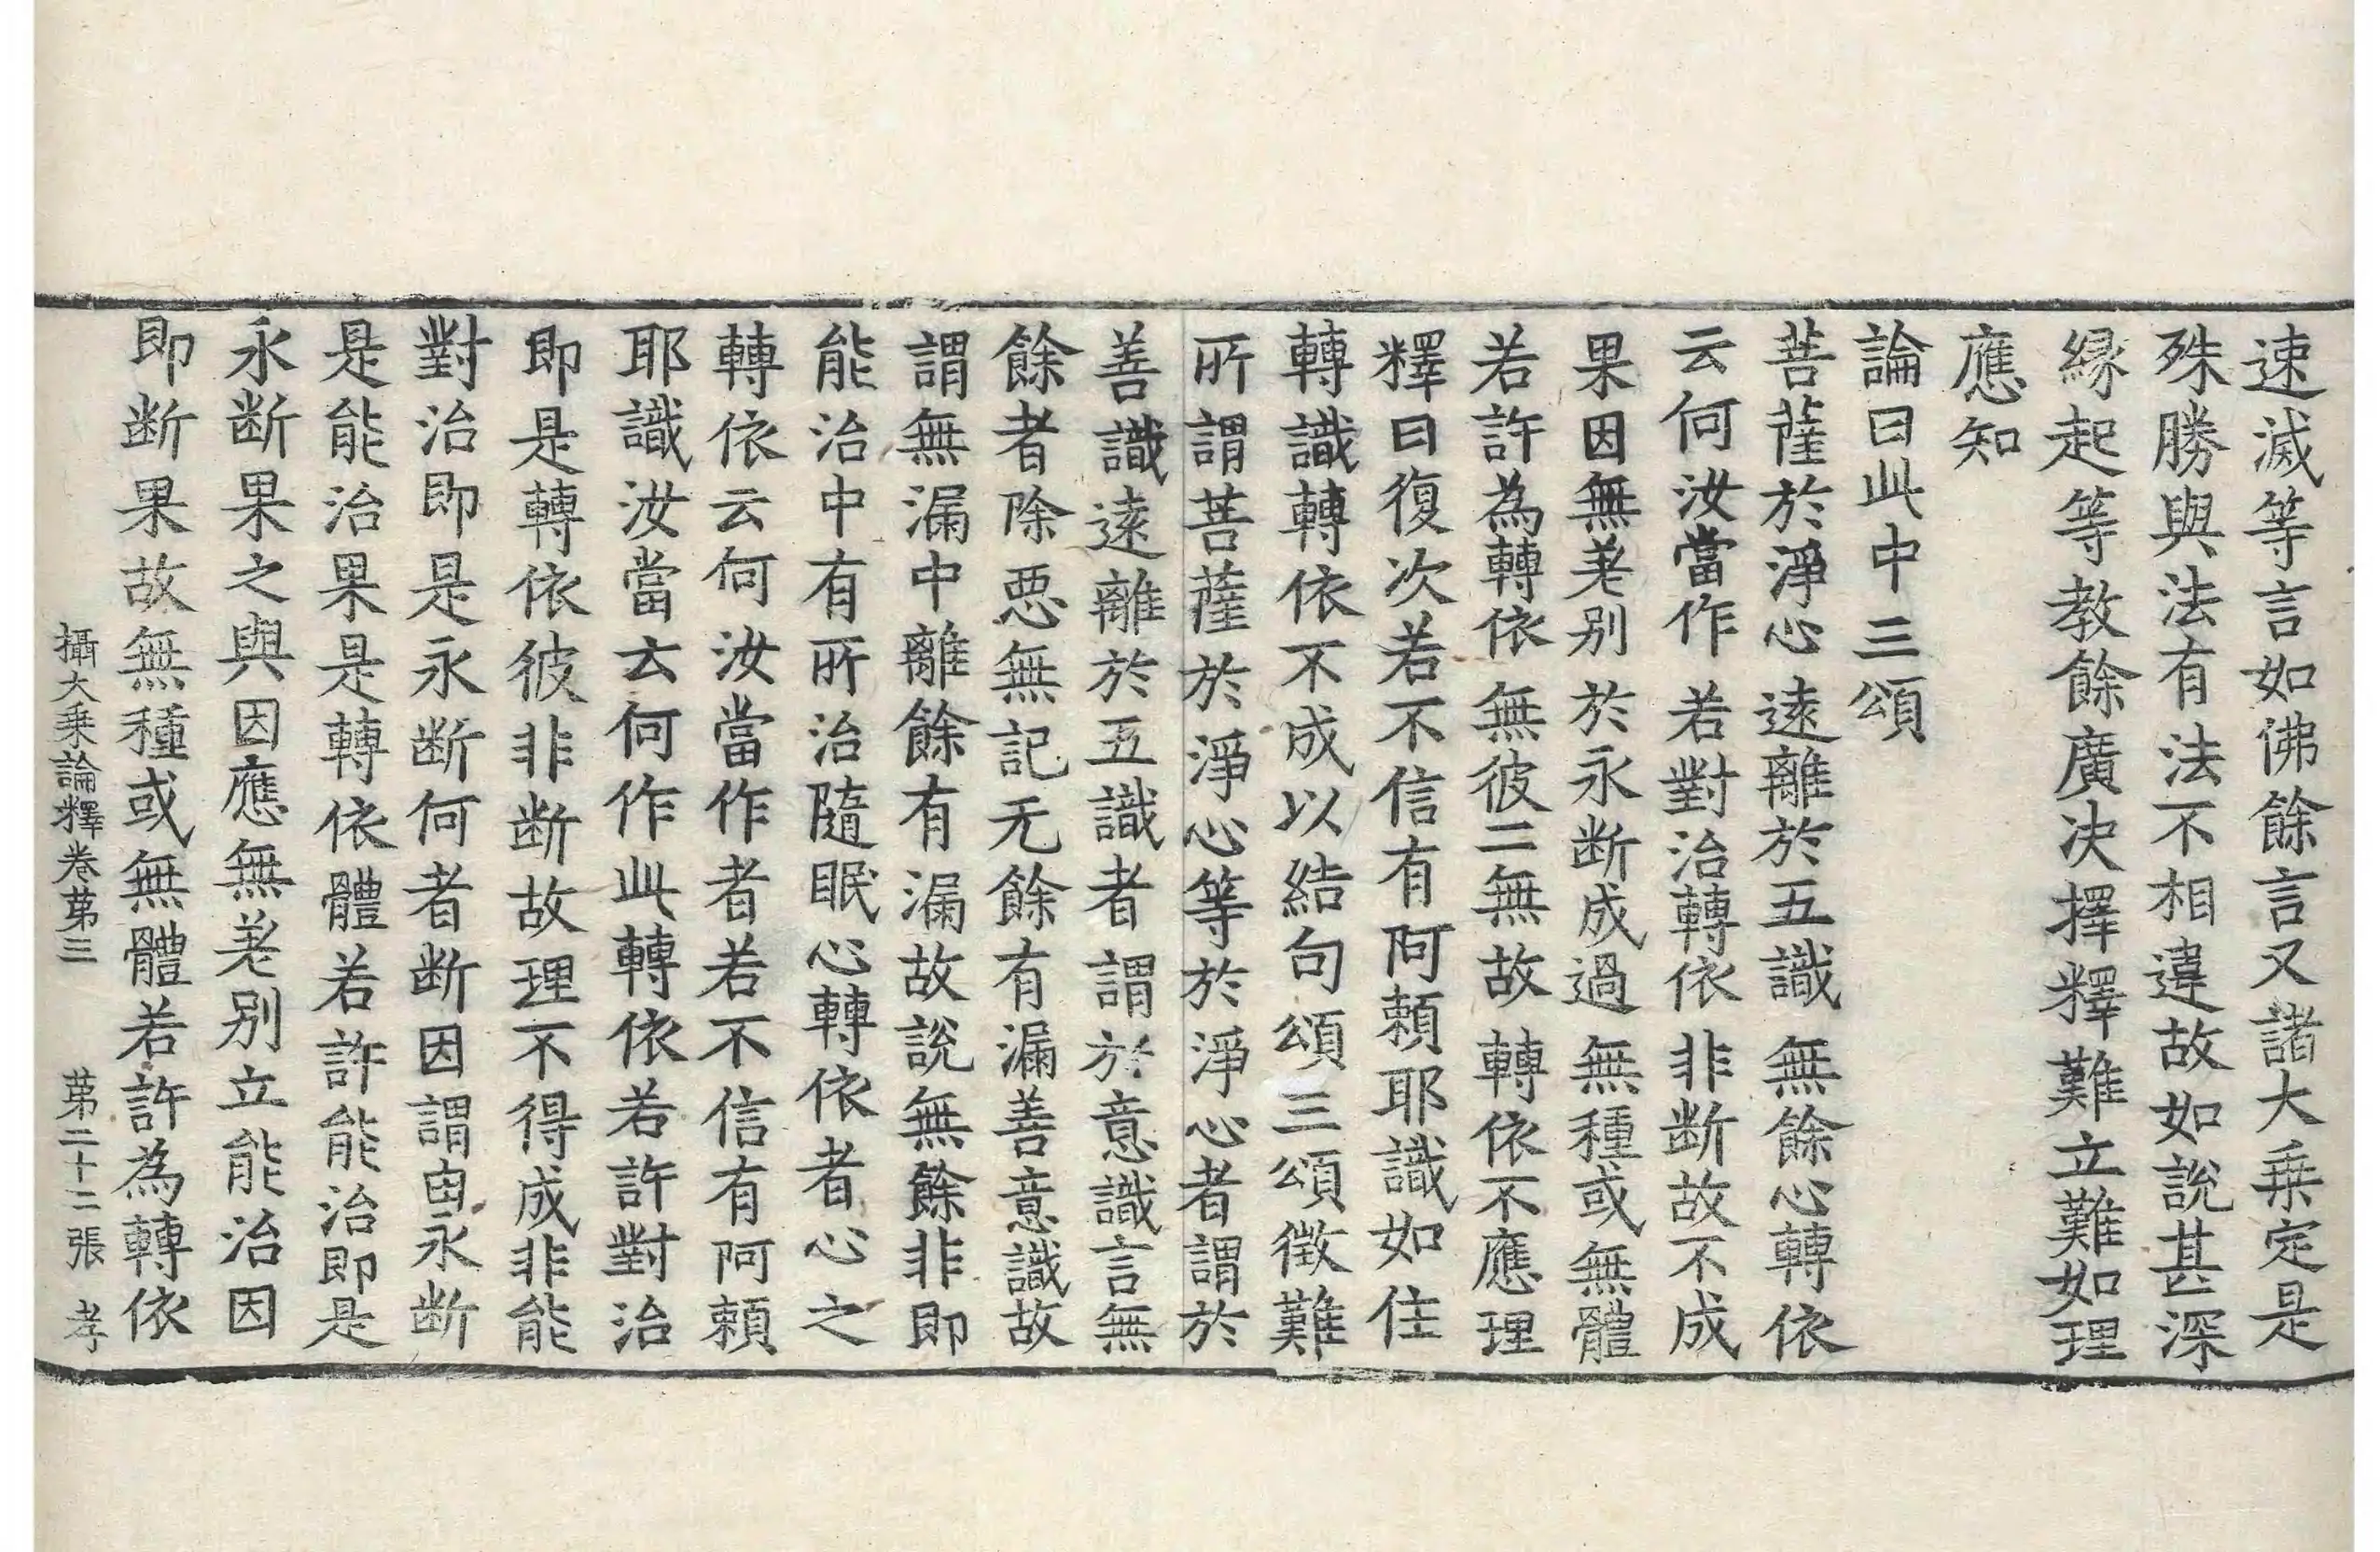 速滅等言如佛餘言又諸大乗定是
殊勝與法有法不相違故如説甚深
縁起等教餘廣決擇釋難立難如理
應知
論曰此中三頌
菩薩於淨心 遠離於五識 無餘心轉依
云何汝當作 若對治轉依 非断故不成
果因無差別 於永断成過 無種或無體
若許為轉依 無彼二無故 轉依不應理
釋曰復次若不信有阿頼耶識如住
轉識轉依不成以結句頌三頌徴難
所謂菩薩於淨心等於淨心者謂於
善識遠離於五識者謂於意識言無
餘者除惡無記无餘有漏善意識故
謂無漏中離餘有漏故説無餘非即
能治中有所治隨眠心轉依者心之
轉依云何汝當作者若不信有阿頼
耶識汝當云何作此轉依若許對治
即是轉依彼非断故理不得成非能
對治即是永断何者断因謂由永断
是能治果是轉依體若許能治即是
永断果之與因應無差別立能治因
即断果故無種或無體若許為轉依
攝大乗論釋卷苐三 苐二十二張 孝